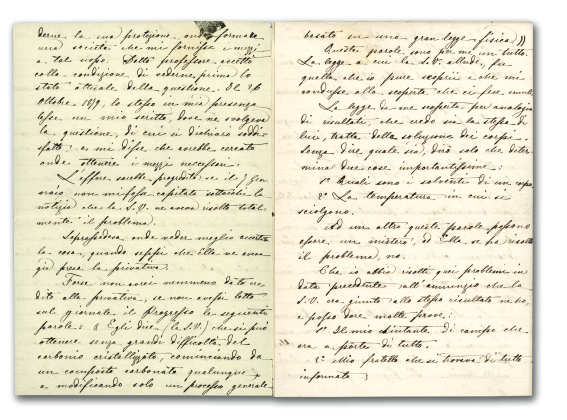 derne la sua protezione, onde formare
una società che mi fornisse i mezzi
a tal uopo. Detto professore accettò
colla condizione di vederne prima lo
stato attuale della questione. Il 26
Ottobre 1879, lo stesso in mia presenza
lesse un mio scritto, dove ne svolgeva
la questione, di cui si dichiarò soddi-
sfatto; e mi disse che avrebbe cercato
onde ottenere i mezzi necessari.
L'affare sarebbe progredito se il 7 Gen
naio non mi fosse capitato sottocchi la
notizia che la S.V. ne aveva risolto total-
mente il problema.
Soprassedeva onde veder meglio accertata
la cosa, quando seppi che Ella ne aveva
già presa la privativa.
Forse non avrei nemmeno dato re
dito alla privativa, se non avessi letto
sul giornale il Progresso le seguenti
parole: « Egli dice (la S.V.) che si può
ottenere senza grandi difficoltà del
carbonio cristallizzato, cominciando da
un composto carbonato qualunque
e modificando solo un processo generale
basato su una gran legge fisica »
Queste parole sono per me un tutto.
La legge a cui la S.V. allude, fu
quella che io pure scoprii e che mi
condusse alla scoperta che ci fece
La legge da me scoperta per analogia
di risultati, che credo sia la stessa di
lui, tratta della soluzione dei corpi.
Senza dire quale sia, dirò solo che deter
mina due cose importantissime:
1° Quali sono i solventi di un corpo.
2° La temperatura in cui si
sciolgono.
Ad un altro queste parole possono
essere un mistero, ad Ella se ha risolto
il problema, no.
Che io abbia risolto quei problemi in
data precedente all'annunzio che la
S.V. era giunto allo stesso risultato ne ho,
e posso dare molte prove:
1° Il mio aiutante di campo che
era a parte di tutto.
2° Mio fratello che si trovava di tutto
informato